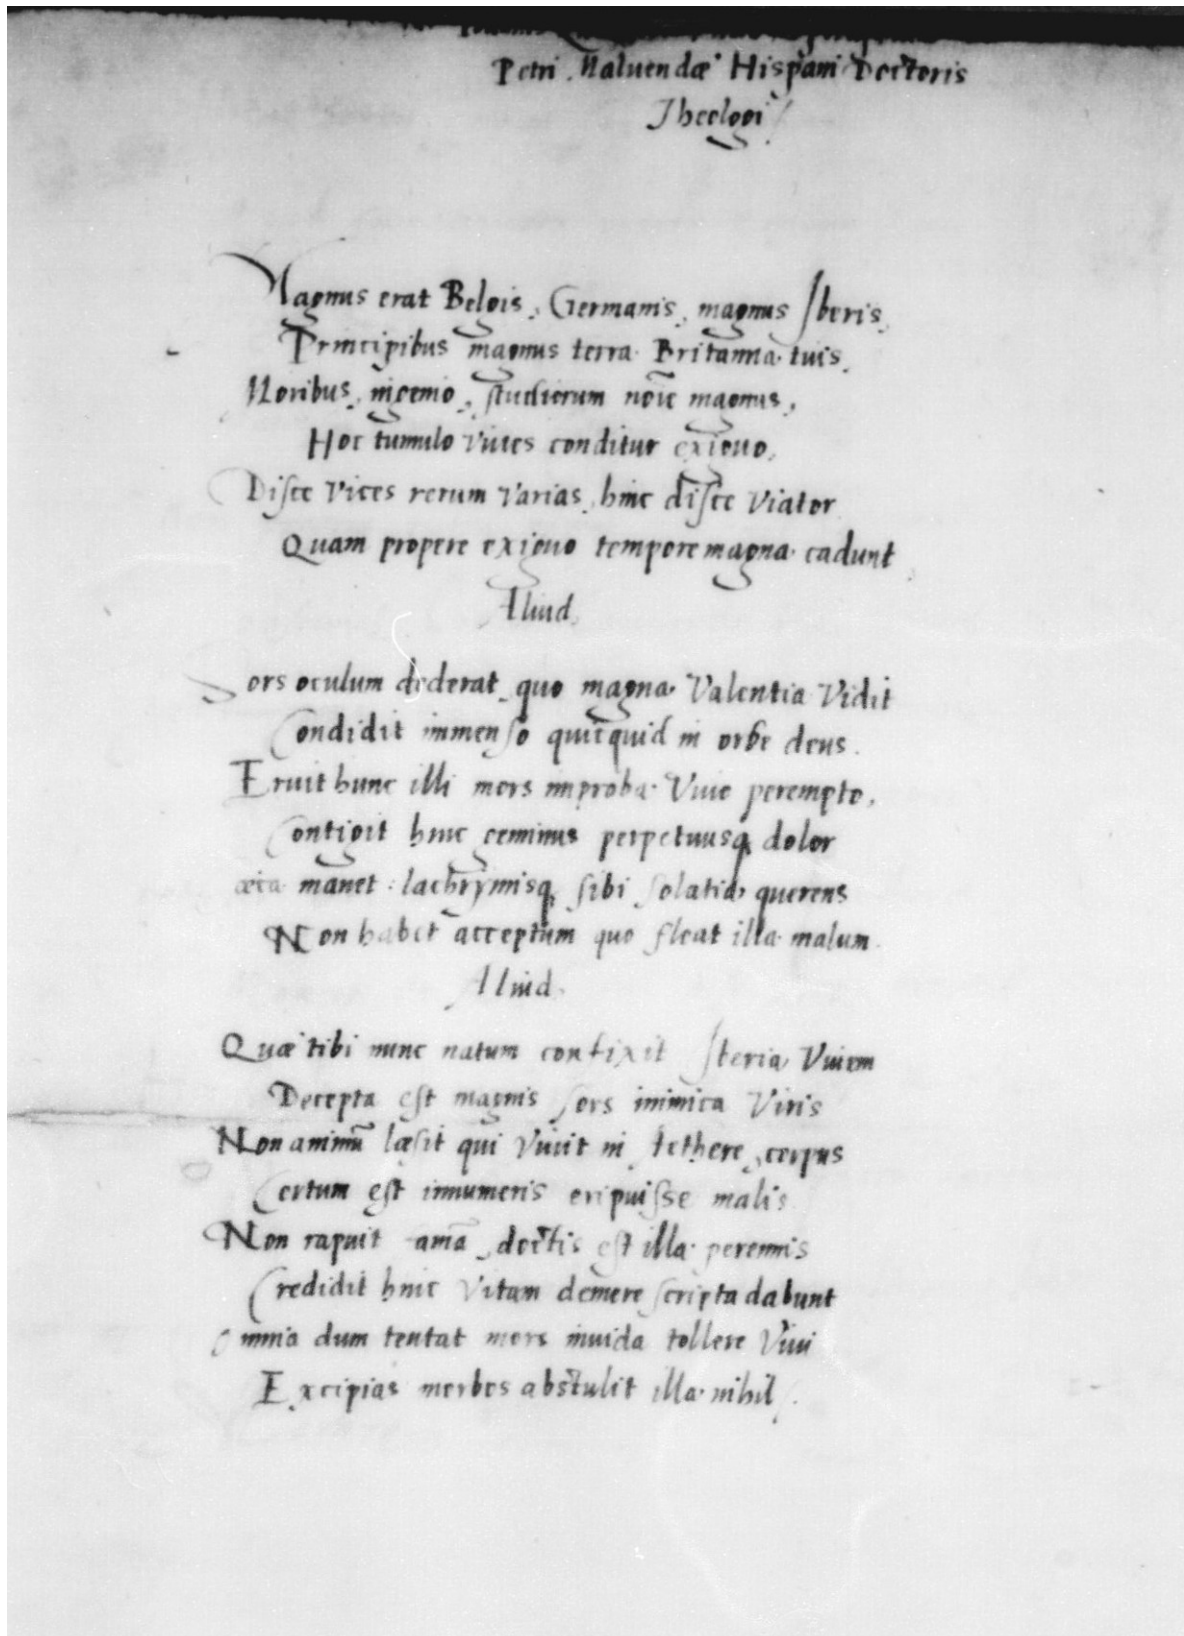 Petri Maluendæ Hispani Doctoris
Theologi
Magnus erat Belgis, Germanis, magnus Iberis,
Principibus magnus terra Britanna tuis,
Moribus, ingenio, studiorum noīe magnus,
Hoc tumulo Viues conditur exiguo,
Disce vices rerum varias, hinc disce viator
Quam propere exiguo tempore magna cadunt
Aliud,
Sors oculum dederat, quo magna Valentia vidit
Condidit immenso quicquid in orbe deus.
Eruit hunc illi mors improba Viue perempto,
Contigit hinc geminus perpetuusq dolor
cæca manet: lachrymisq sibi solatia querens
Non habet acceptum quo fleat illa malum
Aliud.
Quæ tibi nunc natum confixit Iberia Viuem
Decepta est magnis sors inimica Viris
Non animū læsit qui viuit in æthere, corpus
Certum est innumeris eripuisse malis
Non rapuit famā, doctis est illa perennis
Credidit hinc vitam demere scripta dabunt
Omnia dum tentat mors inuida tollere Viui
Excipias morbos abstulit illa nihil.